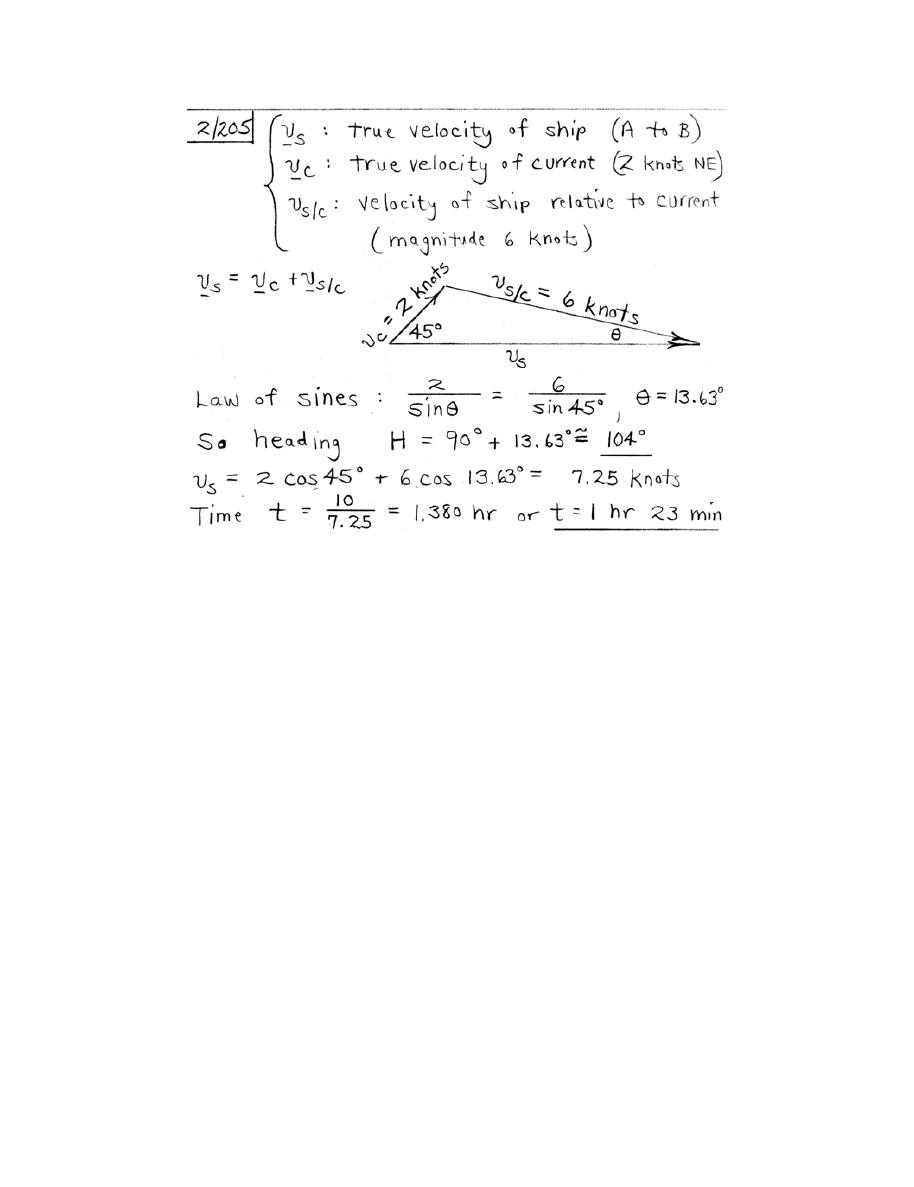 2/205 v_s : true velocity of ship (A to B)
v_c : true velocity of current (2 knots NE)
v_s/c : velocity of ship relative to current
(magnitude 6 knots)
v_s = v_c + v_s/c
v_c = 2 knots
v_s/c = 6 knots
45°
θ
v_s
Law of sines : 2/sin θ = 6/sin 45° , θ = 13.63°
So heading H = 90° + 13.63° ≅ 104°
v_s = 2 cos 45° + 6 cos 13.63° = 7.25 knots
Time t = 10/7.25 = 1.380 hr or t = 1 hr 23 min